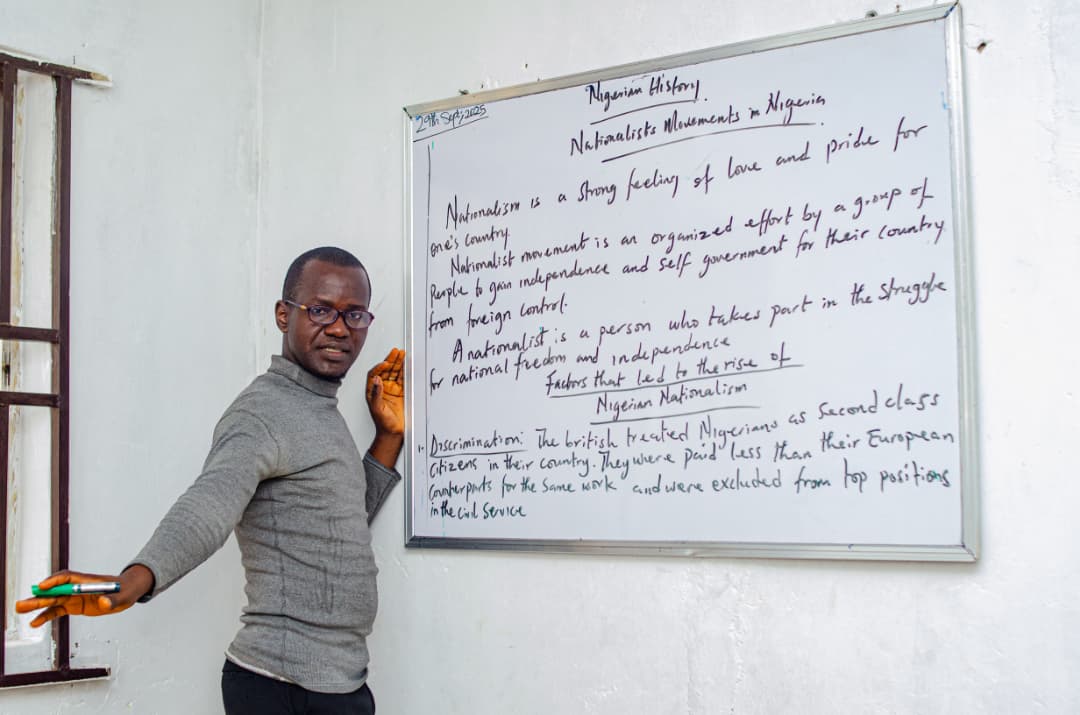 29th Sept, 2025
Nigerian History
Nationalists Movements in Nigeria
Nationalism is a strong feeling of love and pride for
one's country
Nationalist movement is an organized effort by a group of
people to gain independence and self government for their country
from foreign control.
A nationalist is a person who takes part in the struggle
for national freedom and independence
Factors that led to the rise of
Nigerian Nationalism
1. Discrimination: The british treated Nigerians as second class
citizens in their country. They were paid less than their European
counterparts for the same work and were excluded from top positions
in the civil service